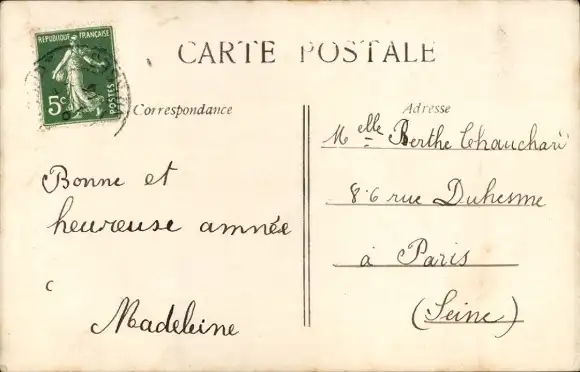 REPUBLIQUE FRANÇAISE
5c
POSTES
CARTE POSTALE
Correspondance
Bonne et
heureuse année
Madeleine
Adresse
Melle Berthe
86 rue Duhesme
à Paris
(Seine)